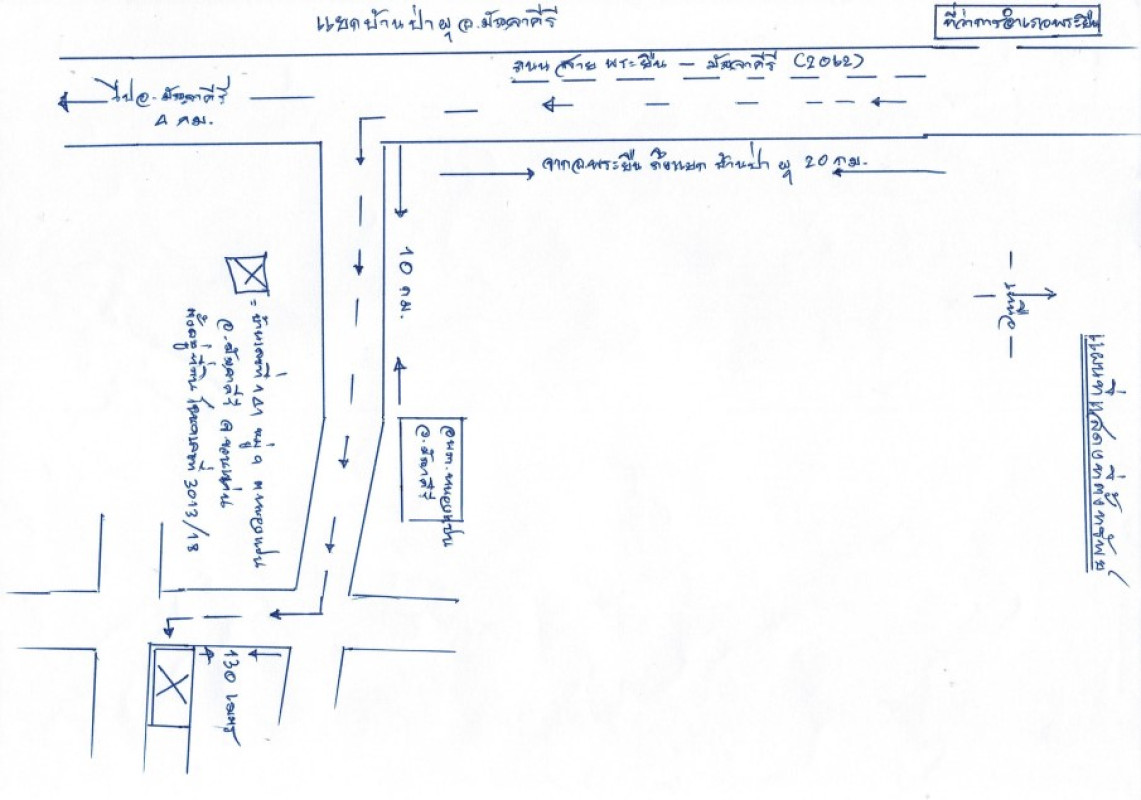 แยกบ้านป่าผุ อ.มัญจาคีรี
ที่ว่าการอำเภอพระยืน
ถนน สาย พระยืน – มัญจาคีรี (2062)
ไป อ.มัญจาคีรี
4 กม.
จากอ.พระยืน ถึงแยก บ้านป่า ผุ 20 กม.
10 กม.
เหนือ
แผนที่แสดงที่ตั้งทรัพย์
= บ้านเลขที่ หมู่ ต.หนองแปน
อ.มัญจาคีรี จ.ขอนแก่น
ตั้งอยู่ที่ดิน โฉนดเลขที่ 2013/18
อบต.หนองแปน
อ.มัญจาคีรี
130 เมตร